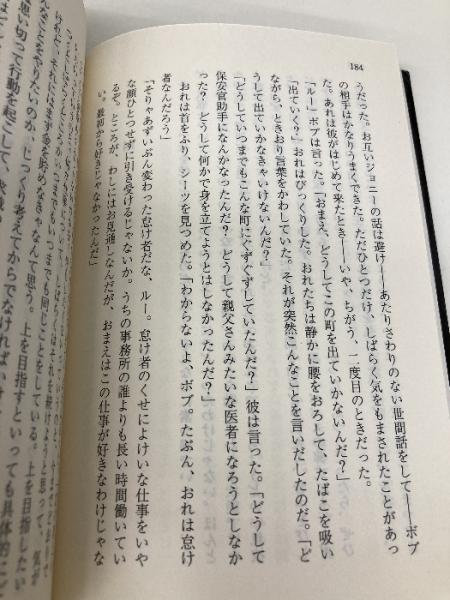 184
うだった。お互いジョニーの話は避け――あたりさわりのない世間話をして――ボブ
の相手はかなりうまくできた。ただひとつだけ、しばらく気をもまされたことがあっ
た。あれは彼がはじめて来たとき――いや、ちがう、二度目のときだった。
「ルー」ボブは言った。「おまえ、どうしてこの町を出ていかないんだ？」
「出ていく？」おれはびっくりした。おれたちは静かに腰をおろして、たばこを吸い
ながら、ときおり言葉をかわしていた。それが突然こんなことを言いだしたのだ。「ど
うして出ていかなきゃいけないんだ？」
「どうしていつまでもこんな町にぐずぐずしていたんだ？」彼は言った。「どうして
保安官助手になんかなったんだ？　どうして親父さんみたいな医者になろうとしなか
った？　どうして何かで身を立てようとはしなかったんだ？」
おれは首をふり、シーツを見つめた。「わからないよ、ボブ。たぶん、おれは怠け
者なんだろう」
「そりゃあずいぶん変わった怠け者だな、ルー。怠け者のくせによけいな仕事をいや
な顔ひとつせずに引き受けるじゃないか。うちの事務所の誰よりも長い時間働いてい
るぞ。ところが、わしにはお見通しなんだが、おまえはこの仕事が好きなわけじゃな
い。最初から好きじゃなかったんだ」
けれど、それにはまず金を貯めなきゃなんて思う。上を目指すといっても具体的に
んなことをやりたいのか、じっくり考えてからでなければいけ
思い切って行動を起こして、